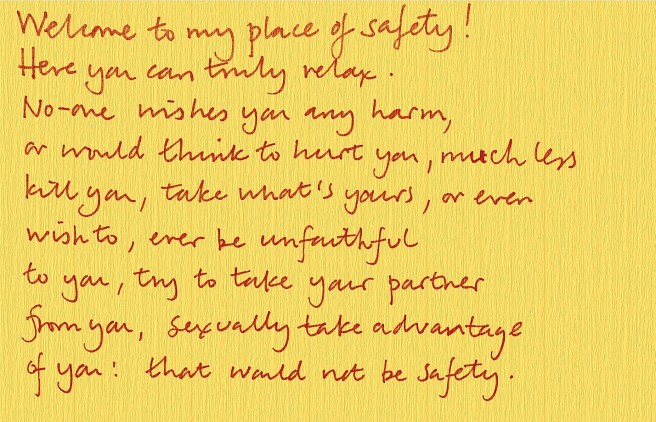 Welcome to my place of safety!
Here you can truly relax.
No-one wishes you any harm,
or would think to hurt you, much less
kill you, take what's yours, or even
wish to, ever be unfaithful
to you, try to take your partner
from you, sexually take advantage
of you: that would not be safety.